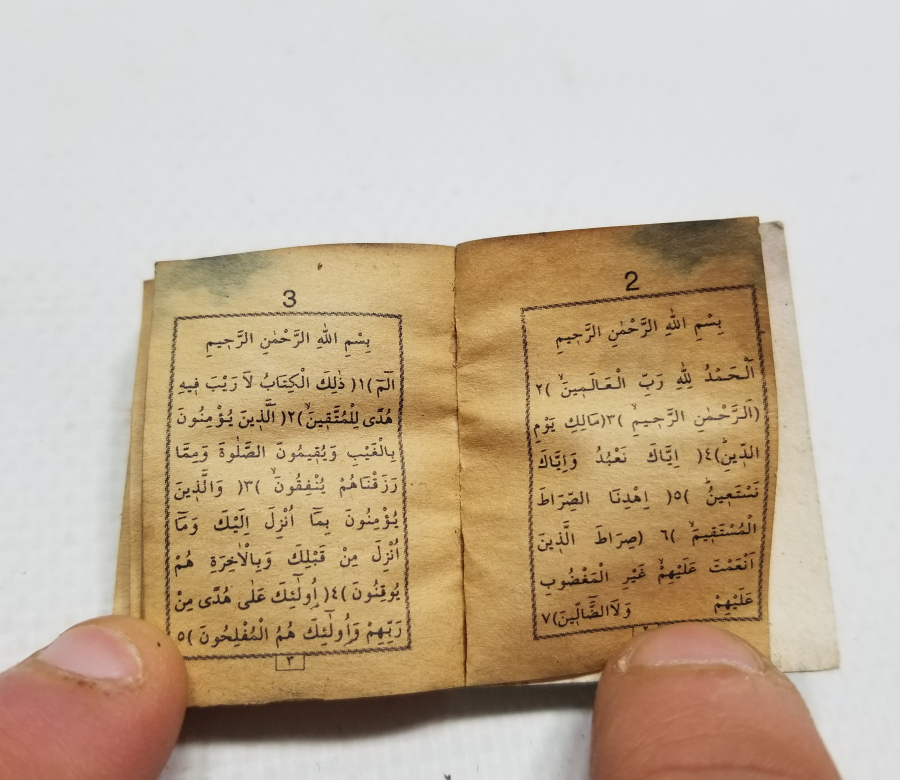 2
بِسْمِ اللهِ الرَّحْمٰنِ الرَّحِيمِ
اَلْحَمْدُ لِلهِ رَبِّ الْعَالَمِينَۙ )٢
(اَلرَّحْمٰنِ الرَّحِيمِۙ )٣(مَالِكِ يَوْمِ
الدِّينِۜ)٤( اِيَّاكَ نَعْبُدُ وَاِيَّاكَ
نَسْتَعِينُۜ )٥( اِهْدِنَا الصِّرَاطَ
الْمُسْتَقِيمَۙ )٦ (صِرَاطَ الَّذِينَ
اَنْعَمْتَ عَلَيْهِمْۙ غَيْرِ الْمَغْضُوبِ
عَلَيْهِمْ وَلَاالضَّٓالِّينَ)٧
3
بِسْمِ اللهِ الرَّحْمٰنِ الرَّحِيمِ
الٓمٓ )١( ذٰلِكَ الْكِتَابُ لاَ رَيْبَ فِيهِ
هُدًى لِلْمُتَّقِينَۙ)٢( اَلَّذِينَ يُؤْمِنُونَ
بِالْغَيْبِ وَيُقِيمُونَ الصَّلٰوةَ وَمِمَّا
رَزَقْنَاهُمْ يُنْفِقُونَۙ )٣( وَالَّذِينَ
يُؤْمِنُونَ بِمَٓا اُنْزِلَ اِلَيْكَ وَمَٓا
اُنْزِلَ مِنْ قَبْلِكَ وَبِالْاٰخِرَةِ هُمْ
يُوقِنُونَ )٤( اُو۬لٰٓئِكَ عَلٰى هُدًى مِنْ
رَبِّهِمْ وَاُو۬لٰٓئِكَ هُمُ الْمُفْلِحُونَ )٥
٣